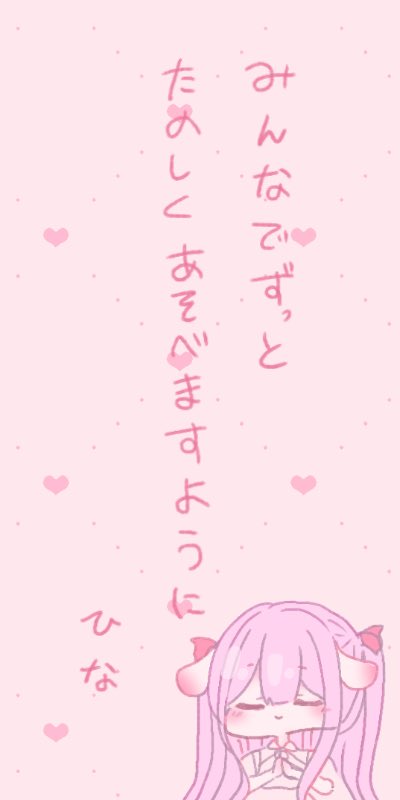 みんなでずっと
たのしくあそべますように
ひな